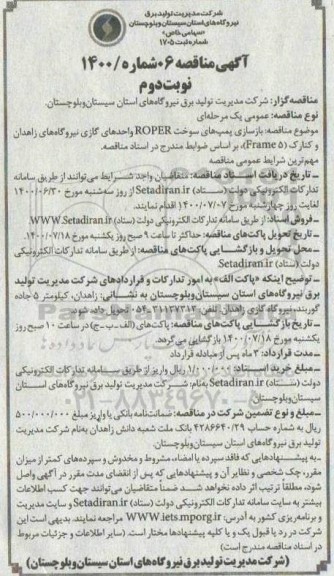 شرکت مدیریت تولید برق
نیروگاه‌های استان سیستان وبلوچستان
«سهامی خاص»
شماره ثبت ۱۷۰۵
آگهی مناقصه ۰۶شماره /۱۴۰۰
نوبت دوم
مناقصه‌گزار: شرکت مدیریت تولید برق نیروگاه‌های استان سیستان‌وبلوچستان.
نوع مناقصه: عمومی یک مرحله‌ای
موضوع مناقصه: بازسازی پمپ‌های سوخت ROPER واحدهای گازی نیروگاه‌های زاهدان
و کنارک (Frame 5)، بر اساس ضوابط مندرج در اسناد مناقصه.
مهم‌ترین شرایط عمومی مناقصه
ـ تاریخ دریافت اسناد مناقصه: متقاضیان واجد شرایط می‌توانند از طریق سامانه
تدارکات الکترونیکی دولت (ستاد) Setadiran.ir از روز سه‌شنبه مورخ ۱۴۰۰/۰۶/۳۰
لغایت روز چهارشنبه مورخ ۱۴۰۰/۰۷/۰۷ اقدام نمایند.
ـ فروش اسناد: از طریق سامانه تدارکات الکترونیکی دولت (ستاد) WWW.Setadiran.ir.
ـ تاریخ تحویل پاکت‌های مناقصه: حداکثر تا ساعت ۹ صبح روز یکشنبه مورخ ۱۴۰۰/۰۷/۱۸.
ـ محل تحویل و بازگشایی پاکت‌های مناقصه: از طریق سامانه تدارکات الکترونیکی
دولت (ستاد) Setadiran.ir.
ـ توضیح اینکه «پاکت الف» به امور تدارکات و قراردادهای شرکت مدیریت تولید
برق نیروگاه‌های استان سیستان‌وبلوچستان به نشانی: زاهدان، کیلومتر ۵ جاده
گوربند، نیروگاه گازی زاهدان تلفن: تحویل داده شود.
ـ تاریخ بازگشایی پاکت‌های مناقصه: پاکت‌های (الف ـ ب ـ ج) در ساعت ۱۰ صبح روز
یکشنبه مورخ ۱۴۰۰/۰۷/۱۸ بازگشایی می‌گردد.
ـ مدت قرارداد: ۳ ماه پس از مبادله قرارداد
ـ مبلغ خرید اسناد: ۱/۰۰۰/۰۰۰ ریال واریز از طریق سامانه تدارکات الکترونیکی
دولت (ستاد) Setadiran.ir به‌نام: شرکت مدیریت تولید برق نیروگاه‌های استان
سیستان‌وبلوچستان
ـ مبلغ و نوع تضمین شرکت در مناقصه: ضمانت‌نامه بانکی یا واریز مبلغ ۵۰۰/۰۰۰/۰۰۰
ریال به شماره حساب ۴۲۸۶۶۴۰/۲۹ بانک ملت شعبه دانش زاهدان به‌نام شرکت مدیریت
تولید برق نیروگاه‌های استان سیستان‌وبلوچستان.
ـ به پیشنهادهایی که فاقد سپرده یا امضاء، مشروط و مخدوش و سپرده‌های کمتر از میزان
مقرر، چک شخصی و نظایر آن و پیشنهادهایی که پس از انقضای مدت مقرر در آگهی واصل
شود، مطلقاً ترتیب اثر داده نخواهد شد. ضمناً متقاضیان می‌توانند جهت کسب اطلاعات
بیشتر به سایت سامانه تدارکات الکترونیکی دولت (ستاد) Setadiran.ir و سایت مدیریت
و برنامه‌ریزی کشور به آدرس: WWW.iets.mporg.ir مراجعه نمایند. بدیهی است این
شرکت در رد یا قبول یک و یا کلیه پیشنهادها مختار است. (سایر اطلاعات و جزئیات مربوط
در اسناد مناقصه مندرج است)
(شرکت مدیریت تولید برق نیروگاه‌های استان سیستان و بلوچستان)